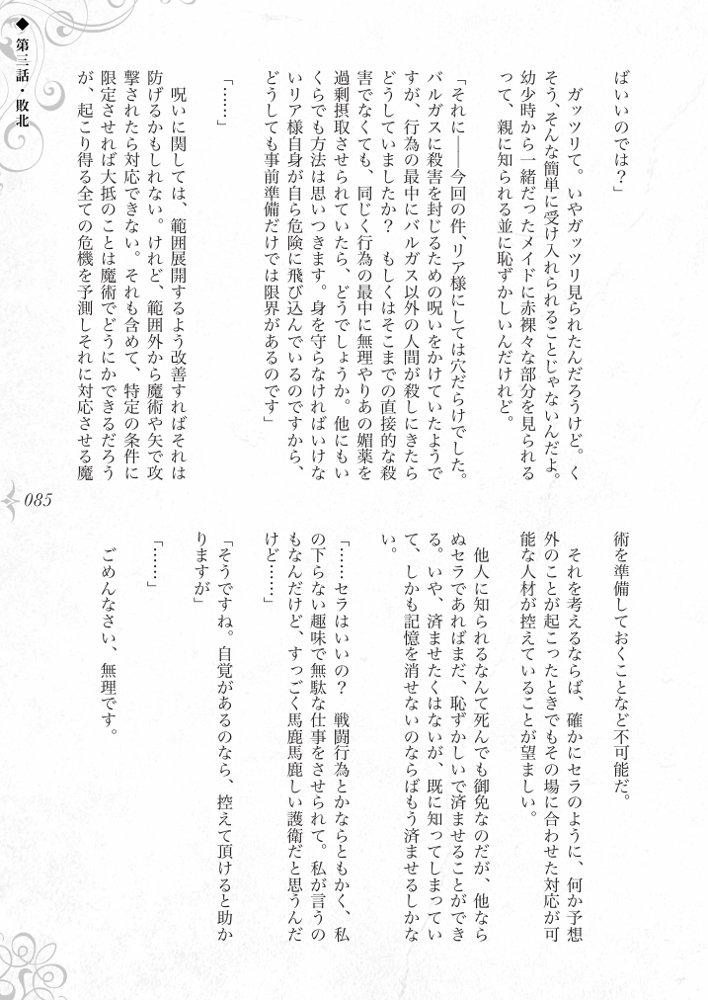 ◆ 第三話・敗北
ばいいのでは？」
ガッツリて。いやガッツリ見られたんだろうけど。く
そう、そんな簡単に受け入れられることじゃないんだよ。
幼少時から一緒だったメイドに赤裸々な部分を見られる
って、親に知られる並に恥ずかしいんだけれど。
「それに――今回の件、リア様にしては穴だらけでした。
バルガスに殺害を封じるための呪いをかけていたようで
すが、行為の最中にバルガス以外の人間が殺しにきたら
どうしていましたか？　もしくはそこまでの直接的な殺
害でなくても、同じく行為の最中に無理やりあの媚薬を
過剰摂取させられていたら、どうでしょうか。他にもい
くらでも方法は思いつきます。身を守らなければいけな
いリア様自身が自ら危険に飛び込んでいるのですから、
どうしても事前準備だけでは限界があるのです」
「……」
呪いに関しては、範囲展開するよう改善すればそれは
防げるかもしれない。けれど、範囲外から魔術や矢で攻
撃されたら対応できない。それも含めて、特定の条件に
限定させれば大抵のことは魔術でどうにかできるだろう
が、起こり得る全ての危機を予測しそれに対応させる魔
術を準備しておくことなど不可能だ。
それを考えるならば、確かにセラのように、何か予想
外のことが起こったときでもその場に合わせた対応が可
能な人材が控えていることが望ましい。
他人に知られるなんて死んでも御免なのだが、他なら
ぬセラであればまだ、恥ずかしいで済ませることができ
る。いや、済ませたくはないが、既に知ってしまってい
て、しかも記憶を消せないのならばもう済ませるしかな
い。
「……セラはいいの？　戦闘行為とかならともかく、私
の下らない趣味で無駄な仕事をさせられて。私が言うの
もなんだけど、すっごく馬鹿馬鹿しい護衛だと思うんだ
けど……」
「そうですね。自覚があるのなら、控えて頂けると助か
りますが」
「……」
ごめんなさい、無理です。
085